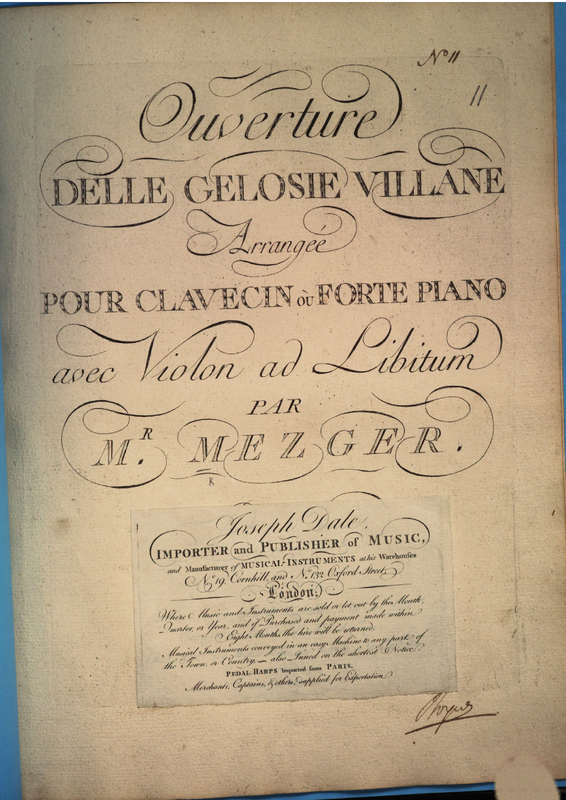 No 11
11
Ouverture
DELLE GELOSIE VILLANE
Arrangée
POUR CLAVECIN où FORTE PIANO
avec Violon ad Libitum
PAR
M.R MEZGER.
Joseph Dale,
IMPORTER and PUBLISHER of MUSIC,
and Manufacturer of MUSICAL INSTRUMENTS at his Warehouses
No. 19, Cornhill, and No. 132 Oxford Street,
London;
Where Music and Instruments are sold or let out by the Month,
Quarter, or Year, and if Purchased and payment made within
Eight Months, the hire will be returned.
Musical Instruments conveyed in an easy Machine to any part of
the Town, or Country — also Tuned on the shortest Notice.
PEDAL HARPS Imported from PARIS.
Merchants, Captains, & others, supplied for Exportation